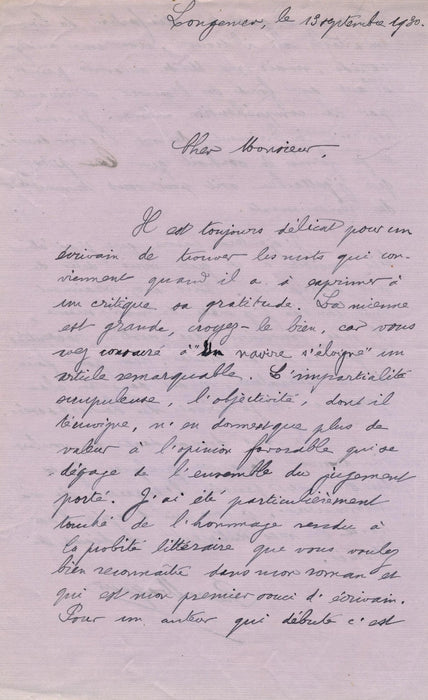 Longemer, le 13 septembre 1930.
Cher Monsieur,
Il est toujours délicat pour un
écrivain de trouver les mots qui con-
viennent quand il a à exprimer à
un critique sa gratitude. La mienne
est grande, croyez-le bien, car vous
avez consacré à "Un navire s'éloigne" un
article remarquable. L'impartialité
scrupuleuse, l'objectivité, dont il
témoigne, n'en donnent que plus de
valeur à l'opinion favorable qui se
dégage de l'ensemble du jugement
porté. J'ai été particulièrement
touché de l'hommage rendu à
la probité littéraire que vous voulez
bien reconnaître dans mon roman et
qui est mon premier souci d'écrivain.
Pour un auteur qui débute c'est